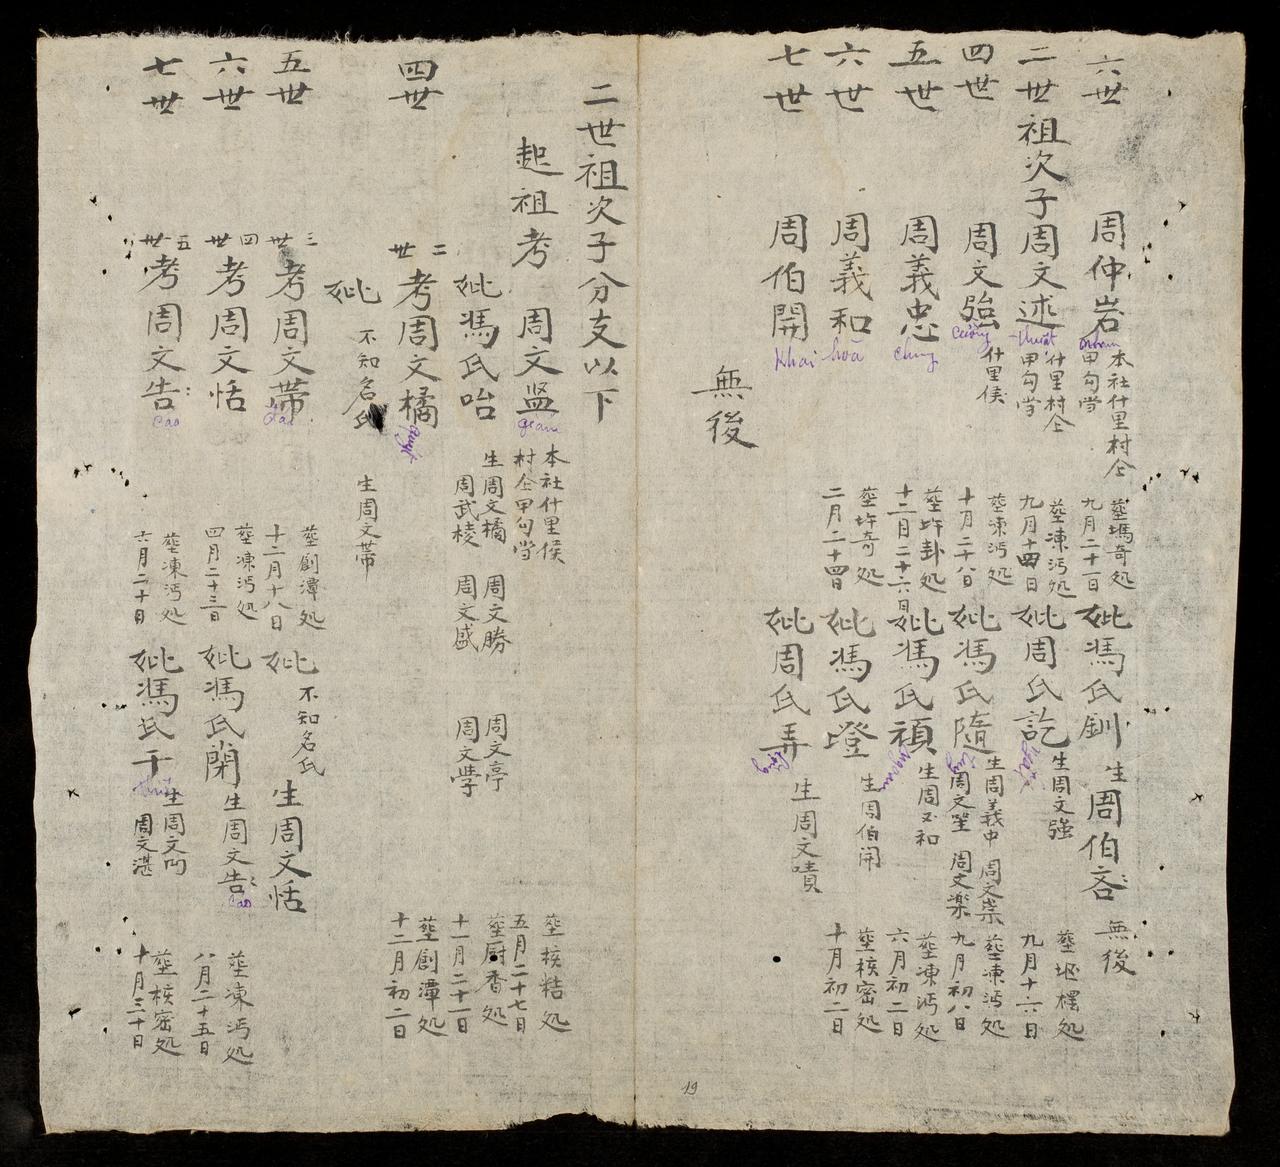 六世 周仲岩 本社什里村仝
甲句當
nham
葬塢奇処
九月二十一日
妣馮氏釧 生周伯吝 無後
二世祖次子周文述 什里村仝
甲句當
thuật
葬凍沔処
九月十四日
妣周氏訖 生周文強
ngật
葬垊檡処
九月十六日
四世 周文強 什里侯
cường
葬凍沔処
十月二十八日
妣馮氏隨 生周義中 周文崇
周文聖 周文楽
tuỳ
葬凍沔処
九月初八日
五世 周義忠
chung
葬圩卦処
十二月二十六日
妣馮氏碩 生周義和
葬凍沔処
六月初二日
六世 周義和
hoà
葬圩奇処
二月二十四日
妣馮氏璒 生周伯開
葬核密処
十月初二日
七世 周伯開
Khai
妣周氏弄 生周文嘖
lộng
無後
19
二世祖次子分支以下
起祖考 周文盟 本社什里侯
村仝甲句當
gian
葬核桔処
五月二十七日
妣馮氏咍 生周文橘 周文勝 周文亭
周武稜 周文盛 周文學
葬厨香処
十一月二十一日
四世 二世考周文橘
quýt
葬創潭処
十二月初二日
妣 不知名氏 生周文蒂
五世 三世考周文蒂
葬創潭処
十二月十八日
妣 不知名氏 生周文恬
六世 四世考周文恬
葬凍沔処
四月二十三日
妣馮氏閑 生周文告
cao
葬凍沔処
八月二十五日
七世 五世考周文告
cao
葬凍沔処
六月二十日
妣馮氏干 生周文門
周文湛
葬核密処
十月三十日